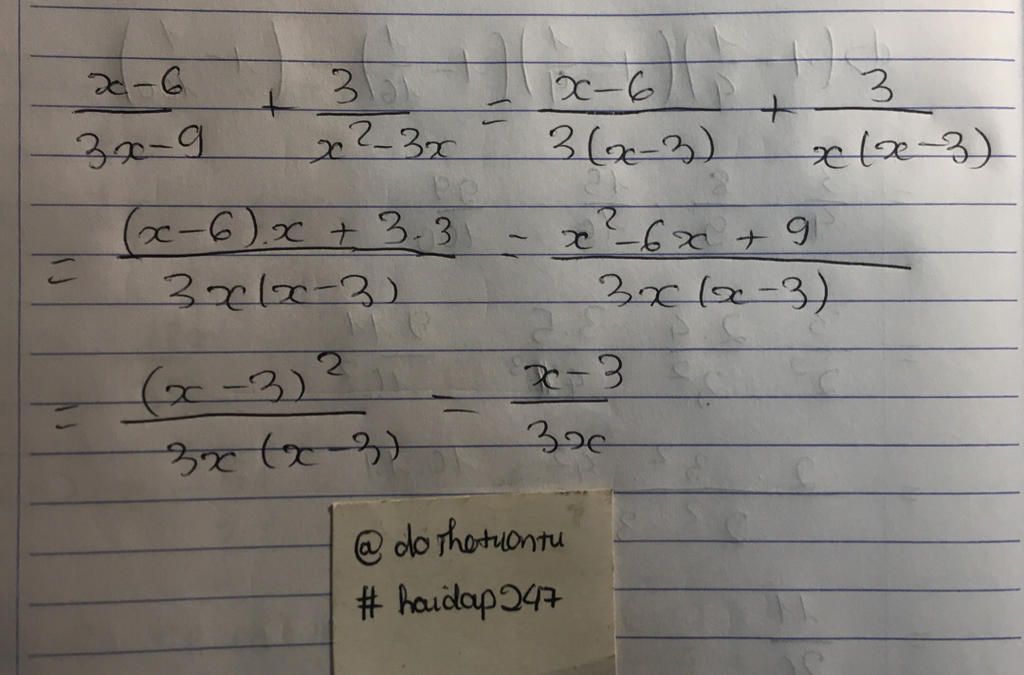 x-6/3x-9 + 3/x²-3x = x-6/3(x-3) + 3/x(x-3)
= (x-6).x + 3.3/3x(x-3) = x²-6x+9/3x(x-3)
= (x-3)²/3x(x-3) = x-3/3x
@
# hoidap247